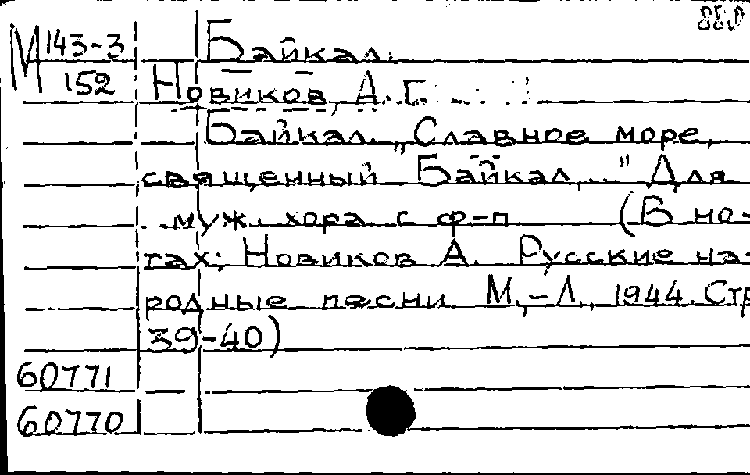 М 143-3 Байкал.
152 Новиков, А. Г.
Байкал. „Славное море,
священный Байкал,.." Для
муж. хора с ф-п (В но-
тах: Новиков А. Русские на-
родные песни. М.,-Л., 1944. Стр
39-40)
60771
60770